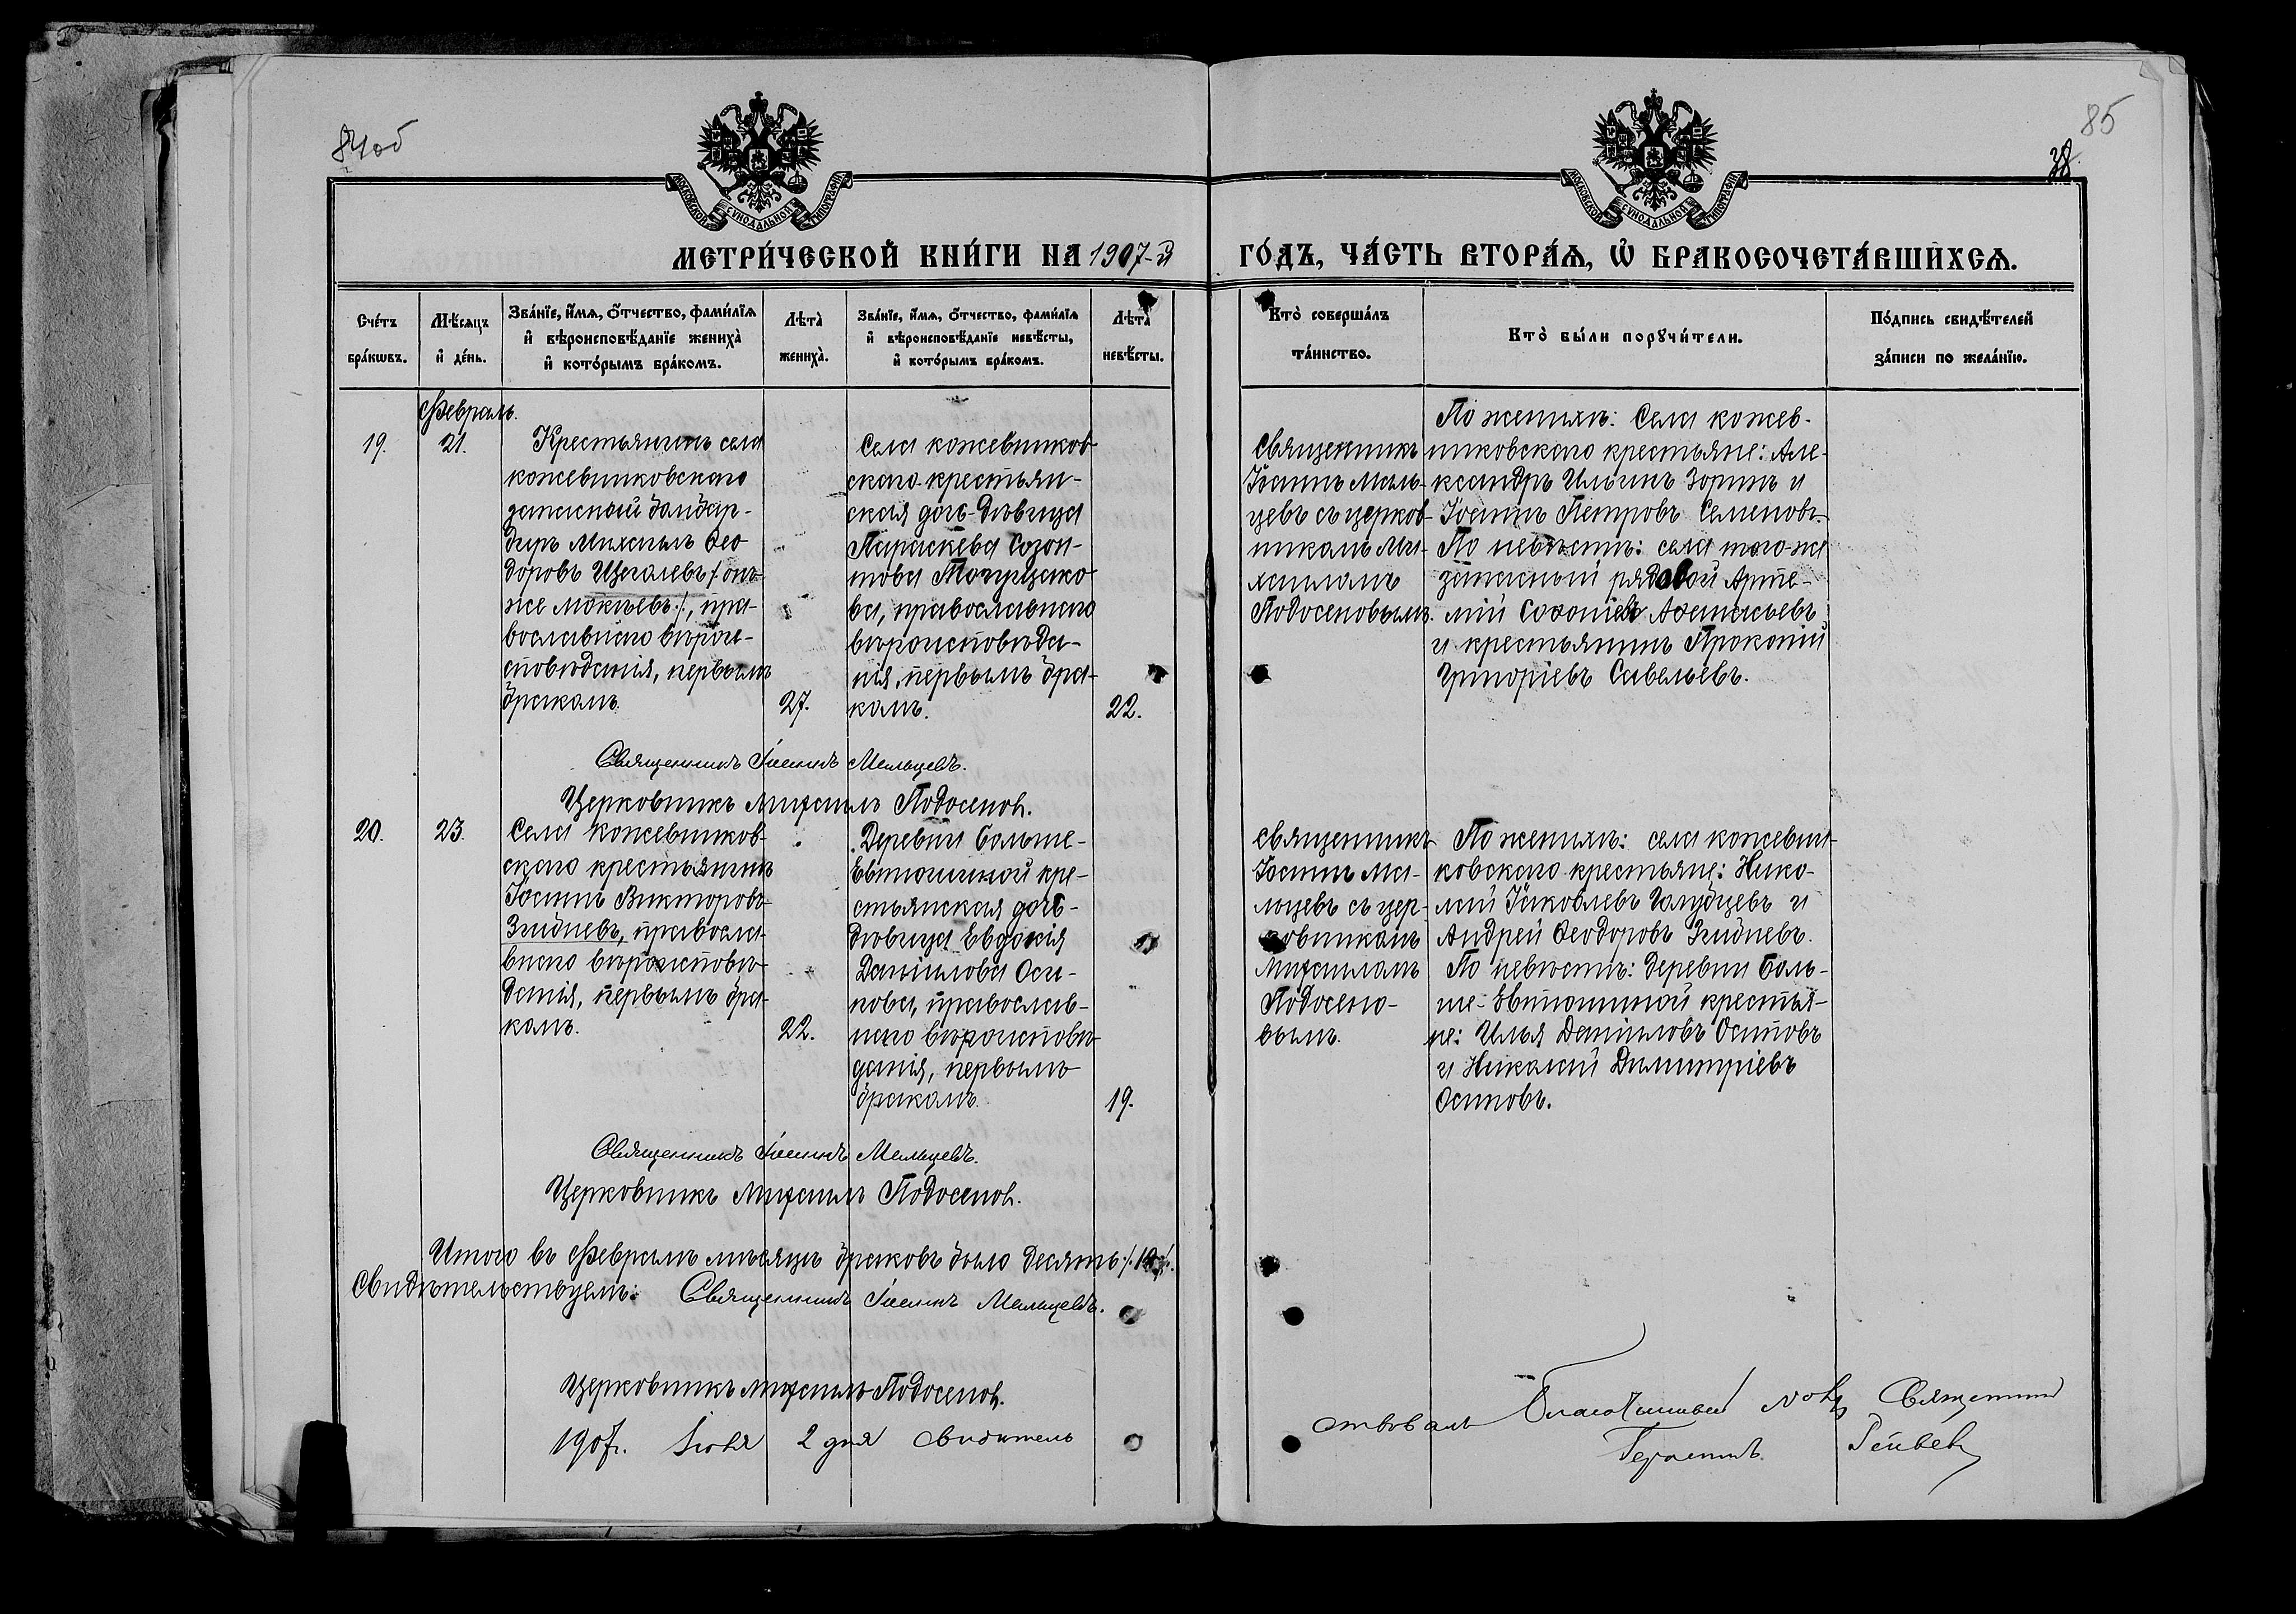 84об
85
38.
МОСКОВСКОЙ СѴНОДАЛЬНОЙ ТИПОГРАФІИ
МОСКОВСКОЙ СѴНОДАЛЬНОЙ ТИПОГРАФІИ
МЕТРИ́ЧЕСКОЙ КНИ́ГИ НА 1907-й
ГО́ДЪ, ЧА́СТЬ ВТОРА́Ѧ, Ѡ҆ БРАКОСОЧЕТА́ВШИХСѦ.
Сче́тъ
бра́кѡвъ.
Мѣ́сяцъ
и҆ де́нь.
Зва́нїе, и҆́мѧ, ѻ҆́тчество, фами́лїѧ
и҆ вѣроисповѣ́данїе жениха̀
и҆ кото́рымъ бра́комъ.
Лѣта̀
жениха̀.
Зва́нїе, и҆́мѧ, ѻ҆́тчество, фами́лїѧ
и҆ вѣроисповѣ́данїе невѣ́сты,
и҆ кото́рымъ бра́комъ.
Лѣта̀
невѣ́сты.
Кто̀ соверша́лъ
та́инство.
Кто̀ бы́ли порꙋчи́тели.
По́дпись свидѣ́телей
за́писи по жела́нїю.
Февраль.
19.
21.
Крестьянинъ села
кожевниковскаго
запасный бомбар-
диръ Михаилъ Ѳео
доровъ Щегалевъ /: онъ
же Мокѣевъ :/, пра-
вославнаго вѣрои-
сповѣданія, первымъ
бракомъ.
27.
Села кожевников
скаго крестьян-
ская дочь-дѣвица
Параскева Созон-
това
ва, православнаго
вѣроисповѣда-
нія, первымъ бра-
комъ.
22.
Священникъ
Іоаннъ Маль-
цевъ съ церков-
никомъ Ми-
хаиломъ
Подосеновымъ.
По женихѣ: Села кожев-
никовскаго крестьяне: Але-
ксандръ Ильинъ Зоринъ и
Іоаннъ Петровъ Семеновъ.
По невѣстѣ: села того-же
запасный рядовой Арте-
мій Софоніевъ Аѳанасьевъ
и крестьянинъ Прокопій
Григоріевъ Савельевъ.
Священникъ Іоаннъ Мальцевъ.
Церковникъ Михаилъ Подосенов.
20.
23.
Села кожевников-
скаго крестьянинъ
Іоаннъ Викторовъ
Згибневъ, правосла-
внаго вѣроисповѣ-
данія, первымъ бра-
комъ.
22.
Деревни Больше-
Евтюшиной кре-
стьянская дочь-
дѣвица Евдокія
Даніилова Оси-
пова, православ-
наго вѣроисповѣ-
данія, первымъ
бракомъ.
19.
Священникъ
Іоаннъ Ма-
льцевъ съ цер-
ковникомъ
Михаиломъ
Подосено-
вымъ.
По женихѣ: села кожевни-
ковскаго крестьяне: Нико-
лай Іаковлевъ Голубцевъ и
Андрей Ѳеодоровъ Згибневъ.
По невѣстѣ: деревни Боль-
ше-Евтюшиной крестья-
не: Илья Даніиловъ Осиповъ
и Николай Димитріевъ
Осиповъ.
Священникъ Іоаннъ Мальцевъ.
Церковникъ Михаилъ Подосенов.
Итого въ Февралѣ мѣсяцѣ браковъ было десять /:10:/.
Свидѣтельствуемъ: Священникъ Іоаннъ Мальцевъ.
Церковникъ Михаилъ Подосенов.
1907г. Іюня 2 дня свидѣтель
ствовалъ Благочинный Священник